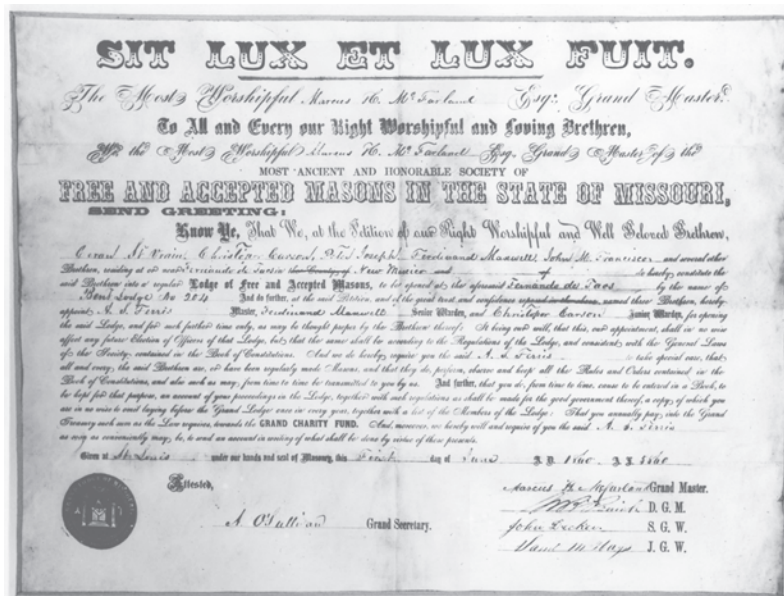 SIT LUX ET LUX FUIT.
The Most Worshipful Marcus H. McFarland Esq: Grand Master.
To All and Every our Right Worshipful and Loving Brethren,
We the Most Worshipful Marcus H. McFarland Esq. Grand Master of the
MOST ANCIENT AND HONORABLE SOCIETY OF
FREE AND ACCEPTED MASONS IN THE STATE OF MISSOURI,
SEND GREETING:
Know Ye, That We, at the Petition of our Right Worshipful and Well Beloved Brethren,
Ceran St Vrain, Christopher Carson, Peter Joseph Ferdinand Maxwell, John M. Francisco and several other
Brethren, residing at or near Fernando de Taos in the County of New Mexico and of do hereby constitute the
said Brethren into a regular Lodge of Free and Accepted Masons, to be opened at the aforesaid Fernando de Taos by the name of
Bent Lodge No 204 And do further, at the said Petition, and of the great trust and confidence reposed in the above named these Brethren, hereby
appoint A. S. Ferris Master, Ferdinand Maxwell Senior Warden, and Christopher Carson Junior Warden, for opening
the said Lodge, and for such further time only, as may be thought proper by the Brethren thereof: It being our will, that this, our appointment, shall in no wise
affect any future Election of Officers of that Lodge, but that the same shall be according to the Regulations of the Lodge, and consistent with the General Laws
of the Society, contained in the Book of Constitutions. And we do hereby require you the said A. S. Ferris to take special care, that
all and every, the said Brethren are, or have been regularly made Masons, and that they do, perform, observe and keep all the Rules and Orders contained in the
Book of Constitutions, and also such as may, from time to time be transmitted to you by us. And further, that you do, from time to time, cause to be entered in a Book, to
be kept for that purpose, an account of your proceedings in the Lodge, together with such regulations as shall be made for the good government thereof, a copy of which you
are in no wise to omit laying before the Grand Lodge once in every year, together with a list of the Members of the Lodge: That you annually pay, into the Grand
Treasury such sum as the Law requires, towards the GRAND CHARITY FUND. And, moreover, we hereby will and require of you the said A. S. Ferris
as soon as conveniently may be, to send an account in writing of what shall be done by virtue of these presents.
Given at St. Louis under our hands and seal of Masonry, this First day of June A.D. 1860. A.L. 5860
Attested,
A. O'Sullivan Grand Secretary.
Marcus H. McFarland Grand Master.
D. G. M.
John Decker S. G. W.
J. G. W.